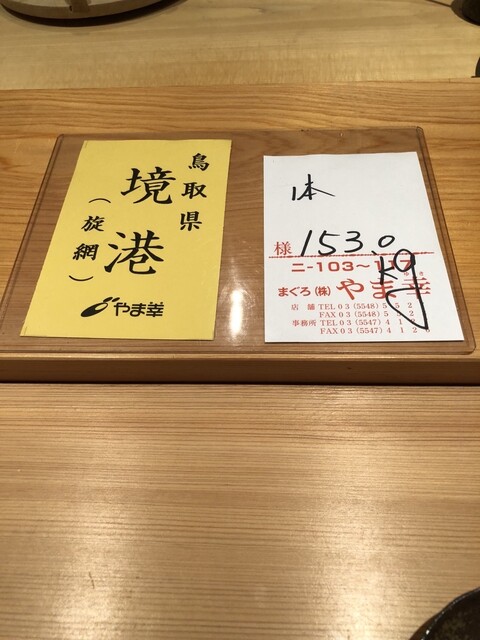 鳥取県
境港
（旋網）
やま幸
本
様 153.0
kg
ニ-103～
まぐろ(株) やま幸
ゆき
店舗 TEL 03 (5548) 5
FAX 03 (5548) 5
事務所 TEL 03 (5547) 4 1 2
FAX 03 (5547) 4 1 2